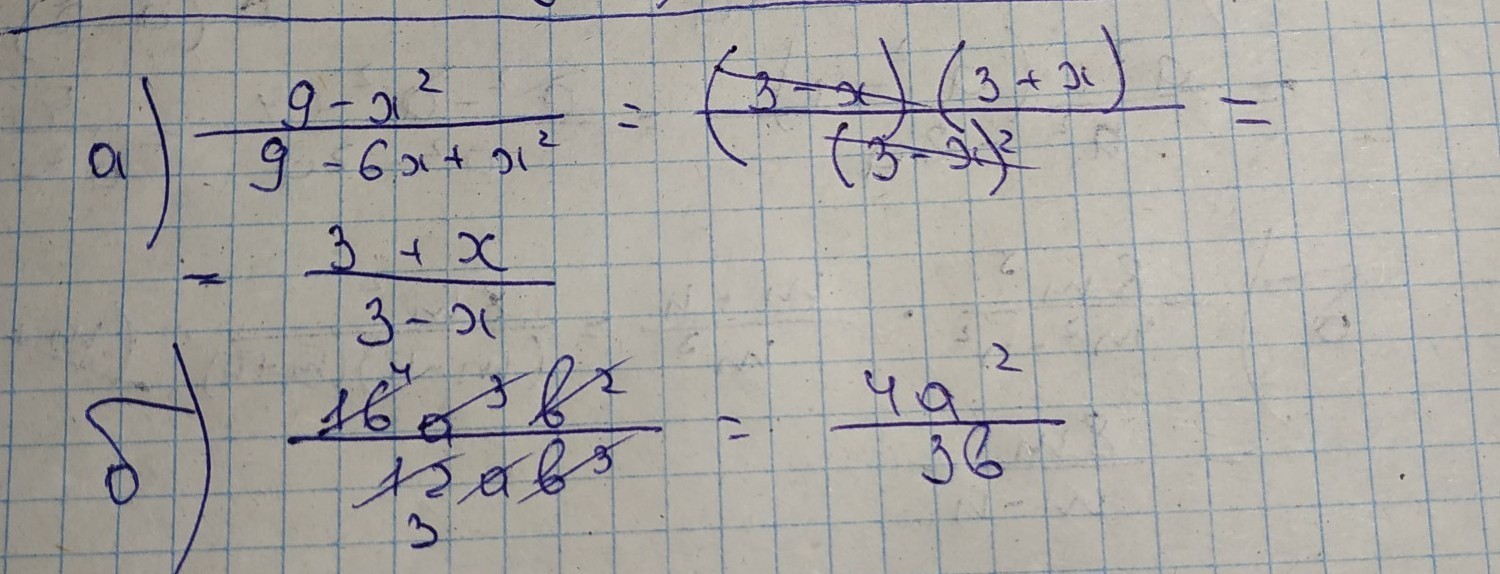 а) (9 - x²)/(9 - 6x + x²) = ((3 - x)(3 + x))/((3 - x)²) =
= (3 + x)/(3 - x)
б) (16⁴a³b²)/(12₃ab³) = (4a²)/(3b)